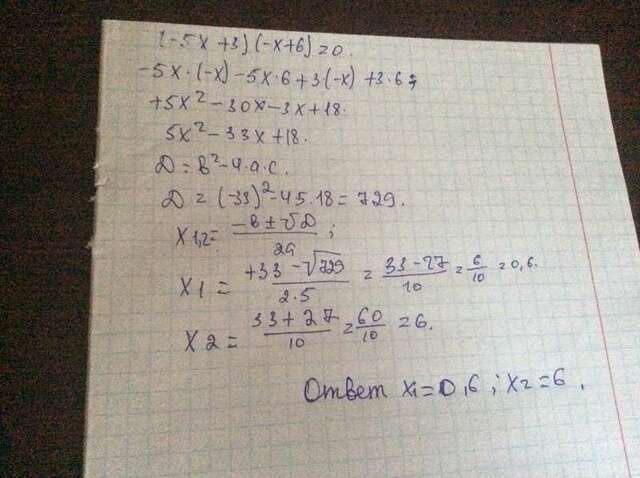 (-5x+3)(-x+6)=0.
-5x·(-x)-5x·6+3(-x)+3·6;
+5x²-30x-3x+18.
5x²-33x+18.
D=b²-4·a·c.
D=(-33)²-4·5·18=729.
x1,2=(-b±√D)/2a;
x1=(+33-√729)/(2·5)=(33-27)/10=6/10=0,6.
x2=(33+27)/10=60/10=6.
Ответ x₁=0,6; x₂=6.